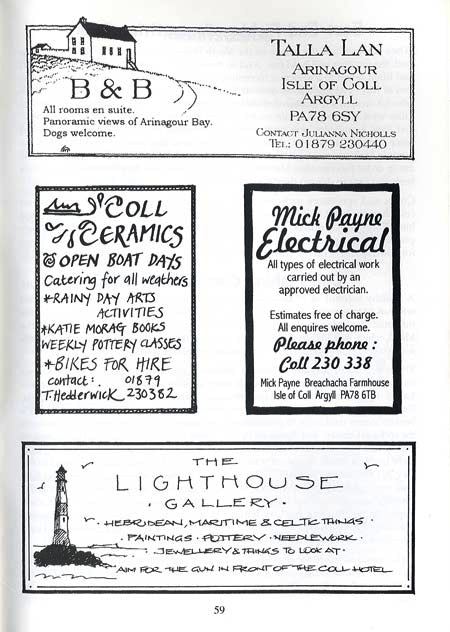 B & B
All rooms en suite.
Panoramic views of Arinagour Bay.
Dogs welcome.
TALLA LAN
ARINAGOUR
ISLE OF COLL
ARGYLL
PA78 6SY
CONTACT JULIANNA NICHOLLS
TEL: 01879 230440
COLL
CERAMICS
OPEN BOAT DAYS
Catering for all weathers
*RAINY DAY ARTS
ACTIVITIES
*KATIE MORAG BOOKS
WEEKLY POTTERY CLASSES
*BIKES FOR HIRE
contact: 01879
T. Hedderwick 230382
Mick Payne
Electrical
All types of electrical work
carried out by an
approved electrician.
Estimates free of charge.
All enquires welcome.
Please phone :
Coll 230 338
Mick Payne Breachacha Farmhouse
Isle of Coll Argyll PA78 6TB
THE
LIGHTHOUSE
· GALLERY ·
· HEBRIDEAN, MARITIME & CELTIC THINGS ·
· PAINTINGS · POTTERY · NEEDLEWORK ·
· JEWELLERY & THINGS TO LOOK AT ·
AIM FOR THE GUN IN FRONT OF THE COLL HOTEL
59